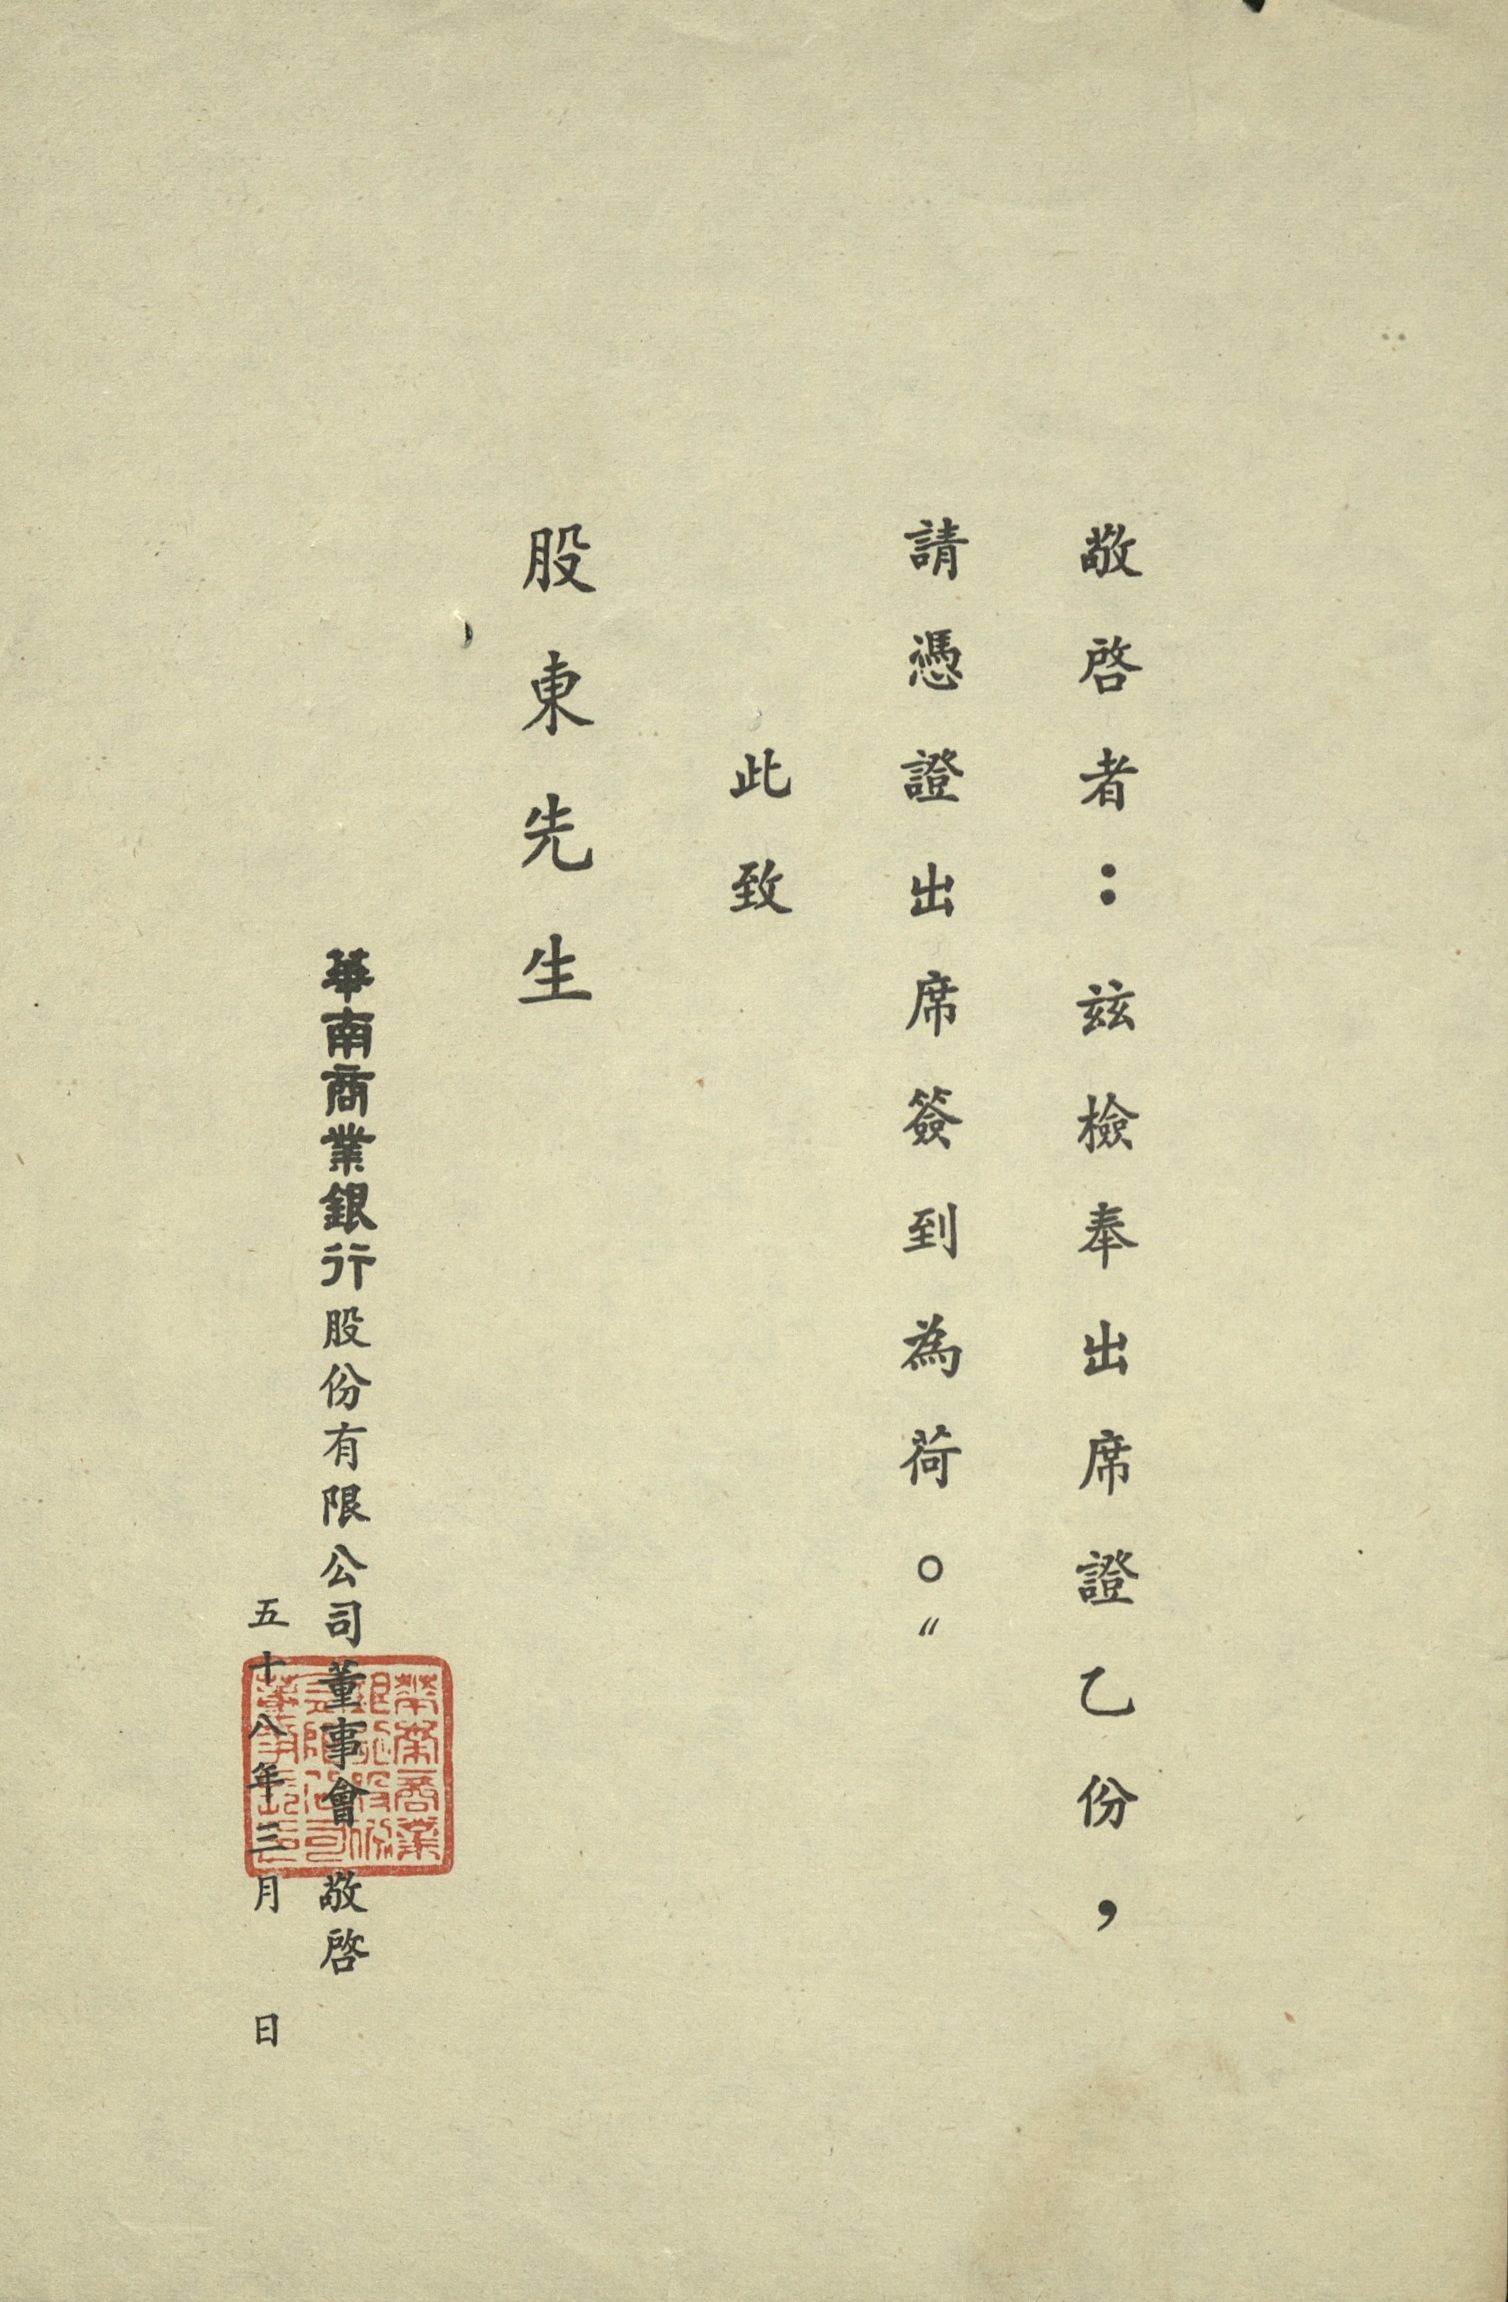 敬啓者：茲檢奉出席證乙份，
請憑證出席簽到為荷。〃
此致
股東先生
華南商業銀行股份有限公司董事會 敬啓
五十八年三月 日